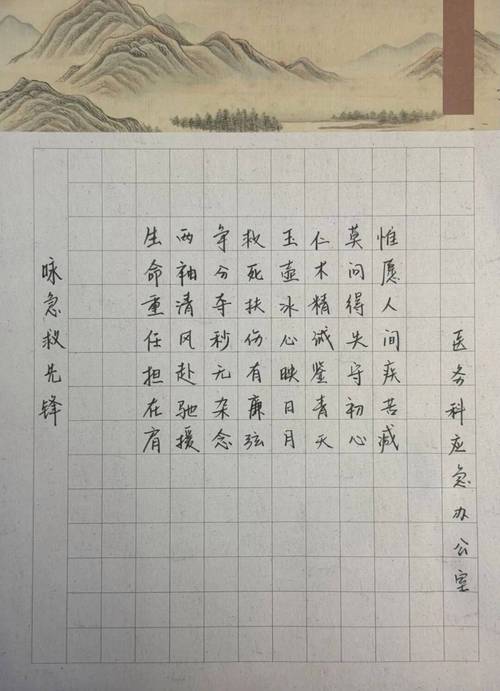 咏急救先锋
生命重任担在肩
两袖清风赴驰援
争分夺秒无杂念
救死扶伤有廉弦
玉壶冰心映日月
仁术精诚鉴青天
莫问得失守初心
惟愿人间疾苦减
医务科应急办公室